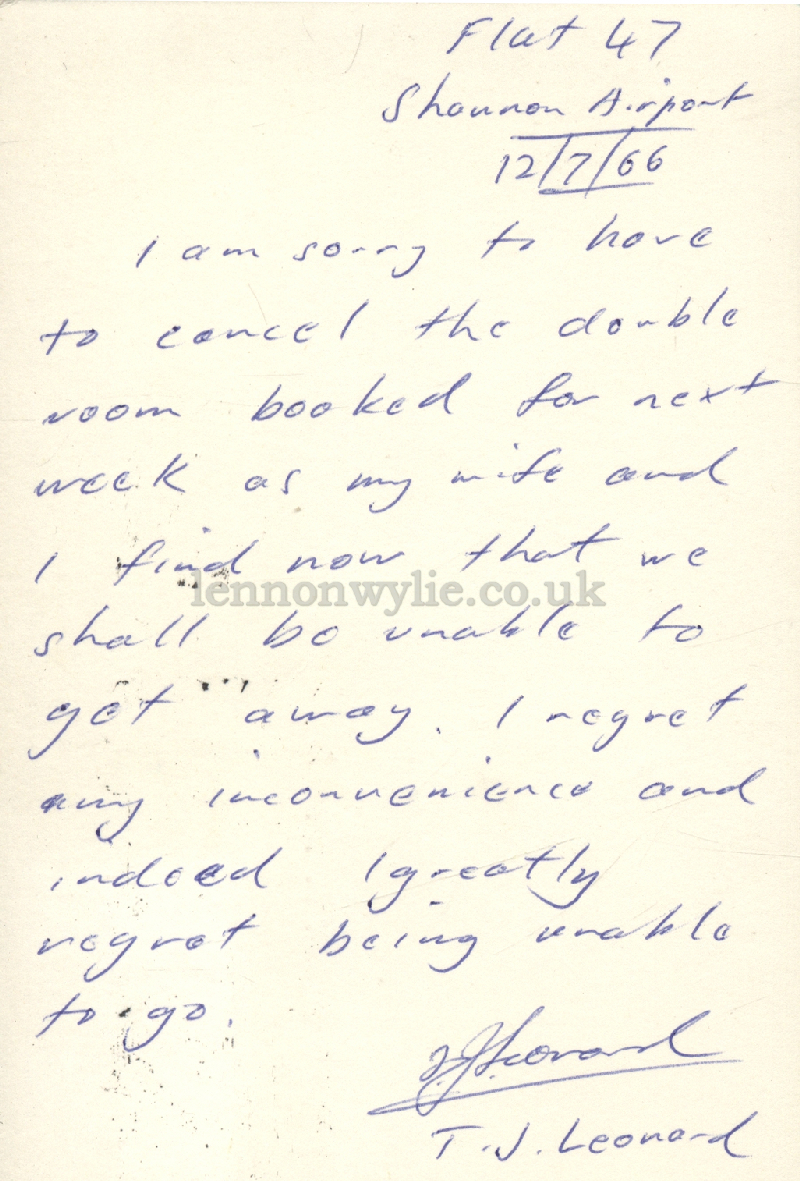 Flat 47
Shannon Airport
12/7/66
I am sorry to have
to cancel the double
room booked for next
week as my wife and
I find now that we
lennonwylie.co.uk
shall be unable to
get away. I regret
any inconvenience and
indeed I greatly
regret being unable
to go.
T.J. Leonard
T.J. Leonard